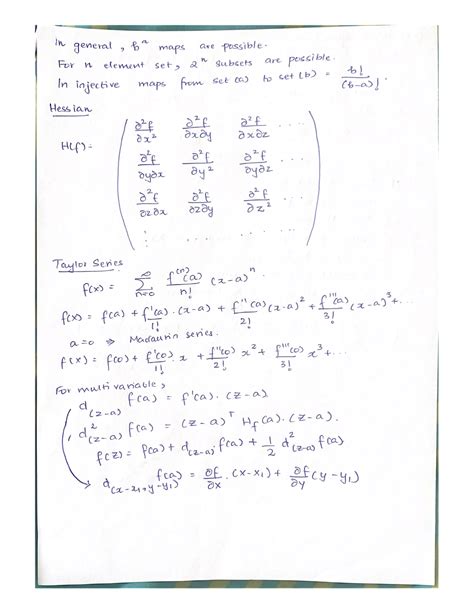 In general, bᵃ maps are possible.
For n element set, 2ⁿ subsets are possible.
In injective maps from set (a) to set (b) = b!/(b-a)!.
Hessian
H(f) = ( ∂²f/∂x² ∂²f/∂x∂y ∂²f/∂x∂z ....
∂²f/∂y∂x ∂²f/∂y² ∂²f/∂y∂z ....
∂²f/∂z∂x ∂²f/∂z∂y ∂²f/∂z² ....
: ..... )
Taylor Series
f(x) = ∞ Σ n=0 f⁽ⁿ⁾(a)/n! (x-a)ⁿ.
f(x) = f(a) + f'(a)/1! . (x-a) + f''(a)/2! (x-a)² + f'''(a)/3! (x-a)³+...
a=0 ⇒ Maclaurin series.
f(x) = f(0) + f'(0)/1! . x + f''(0)/2! x² + f'''(0)/3! x³+...
For multi variable,
d(z-a) f(a) = f'(a) . (z-a).
d²(z-a) f(a) = (z-a)ᵀ Hf(a) . (z-a).
f(z) = f(a) + d(z-a) f(a) + 1/2 d²(z-a) f(a)
d(x-x₁+y-y₁) f(a) = ∂f/∂x . (x-x₁) + ∂f/∂y (y-y₁)